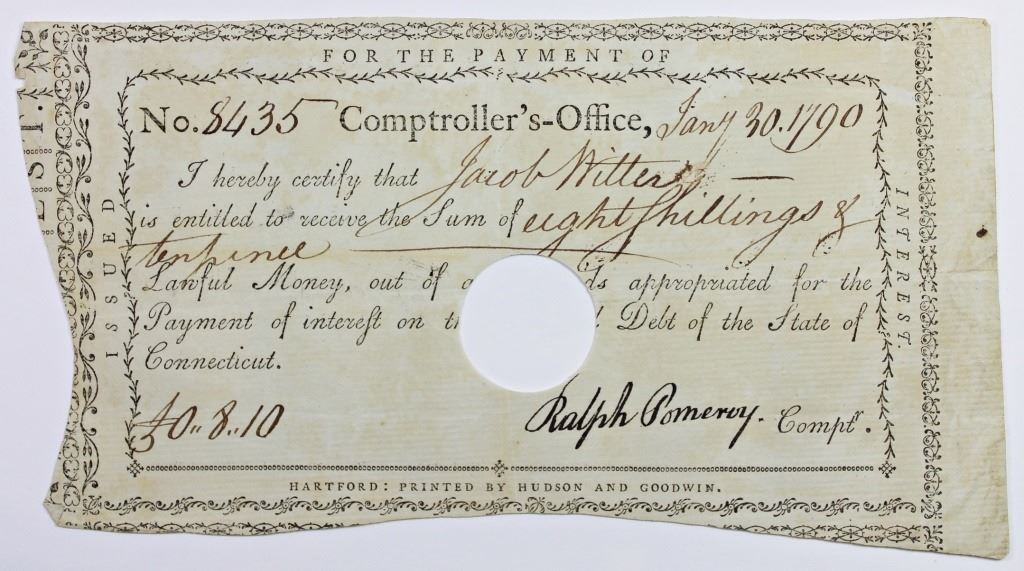 FOR THE PAYMENT OF
No. 8435 Comptroller's-Office, Jany 30. 1790
I hereby certify that Jacob Witter
is entitled to receive the Sum of eight Shillings &
ten pence
Lawful Money, out of a ds appropriated for the
Payment of interest on th l Debt of the State of
Connecticut.
£0..8..10
Ralph Pomeroy. Comptr.
HARTFORD: PRINTED BY HUDSON AND GOODWIN.
ISSUED
INTEREST.
EST.